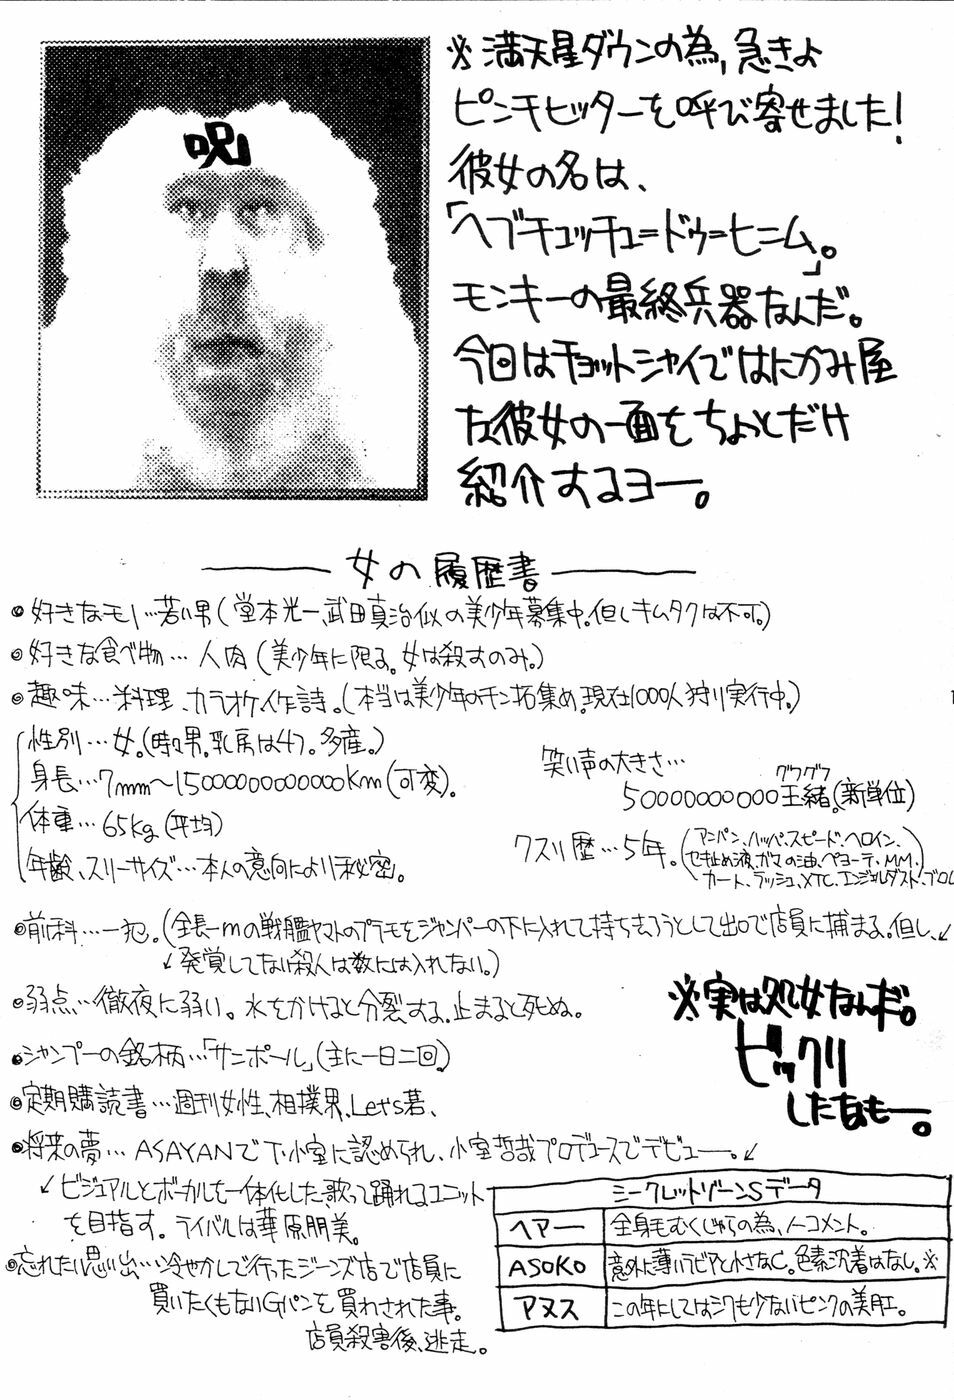 呪
※満天星ダウンの為、急きよ
ピンチヒッターを呼び寄せました!
彼女の名は、
「ヘブチュッチュ=ドゥ=ヒニム」。
モンキーの最終兵器なんだ。
今回はチョットシャイではにかみ屋
な彼女の一面をちょっとだけ
紹介するヨー。
女の履歴書
●好きなモノ…若い男(堂本光一、武田真治似の美少年募集中。但しキムタクは不可。)
●好きな食べ物…人肉(美少年に限る。女は殺すのみ。)
●趣味…料理、カラオケ、作詩。(本当は美少年のチン拓集め。現在1000人狩り実行中。)
性別…女。(時々男。乳房は47。多産。)
身長…7mm〜15000000000000Km(可変)。
体重…65kg(平均)
年齢、スリーサイズ…本人の意向により秘密。
笑い声の大きさ…
グワグワ
50000000000王緒。(新単位)
クスリ歴…5年。(アンパン、ハッパ、スピード、ヘロイン、
せき止め液、ガマの油、ペヨーテ、MM、
カート、ラッシュ、XTC、エンジェルダスト、ブロ
●前科…一犯。(全長一mの戦艦ヤマトのプラモをジャンパーの下に入れて持ち去ろうとして出口で店員に捕まる。但し、↙
↙発覚してない殺人は数には入れない。)
●弱点…徹夜に弱い。水をかけると分裂する。止まると死ぬ。
●シャンプーの銘柄…「サンポール」(主に一日二回)
●定期購読書…週刊女性、相撲界、Let's若、
※実は処女なんだ。
ビックリ
したなもー。
●将来の夢…ASAYANで下小室に認められ、小室哲哉プロデュースでデビュー。↙
↙ビジュアルとボーカルを一体化した、歌って踊れるユニット
を目指す。ライバルは華原朋美。
●忘れたい思い出…冷やかしで行ったジーンズ店で店員に
買いたくもないGパンを買わされた事。
店員殺害後、逃走。
シークレットゾーンSデータ
ヘアー 全身毛むくじゃらの為、ノーコメント。
ASOKO 意外に薄いラビアと小さなC。色素沈着はなし。※
アヌス この年にしてはシワも少ないピンクの美肛。